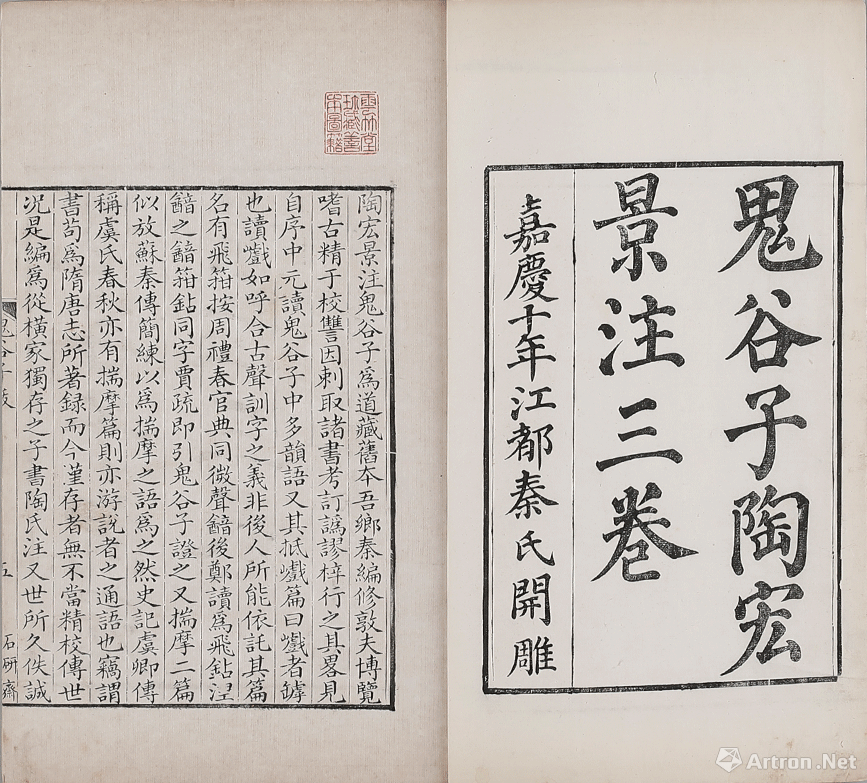 鬼谷子陶宏
景注三卷
嘉慶十年江都秦氏開雕
陶宏景注鬼谷子為道藏舊本吾鄉秦編修敦夫博覽
嗜古精于校讐因刺取諸書考訂譌謬梓行之其畧見
自序中元讀鬼谷子中多韻語又其抵巇篇曰巇者罅
也讀巇如呼合古聲訓字之義非後人所能依託其篇
名有飛箝按周禮春官典同微聲䪩後鄭讀為飛鉆涅
䪩之䪩箝鉆同字賈疏即引鬼谷子證之又揣摩二篇
似放蘇秦傳簡練以為揣摩之語為之然史記虞卿傳
稱虞氏春秋亦有揣摩篇則亦游說者之通語也竊謂
書苟為隋唐志所著録而今堇存者無不當精校傳世
況是編為從橫家獨存之子書陶氏注又世所久佚誠
鬼谷子跋
五
石研齋
雲林堂
珍藏善
本圖籍
Artron.Net